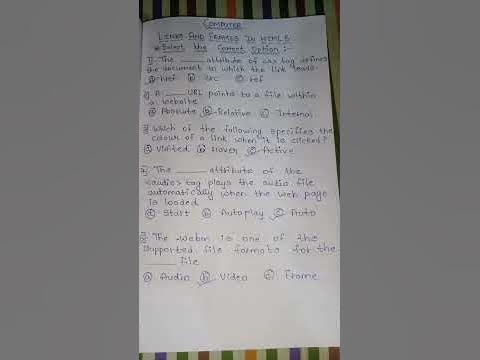 COMPUTER
LINKS AND FRAMES IN HTML 5
* Select the Correct Option :-
1) The ____ attribute of <a> tag defines
the document to which the link leads.
a href b src c ref
2) A ____ URL points to a file within
a website
a Absolute b Relative c Internal
3) Which of the following specifies the
colour of a link when it is clicked?
a Visited b Hover c Active
4) The ____ attribute of the
<audio> tag plays the audio file
automatically when the web page
is loaded
a Start b Autoplay c Auto
5) The webm is one of the
supported file formats for the
____ file
a Audio b Video c Frame